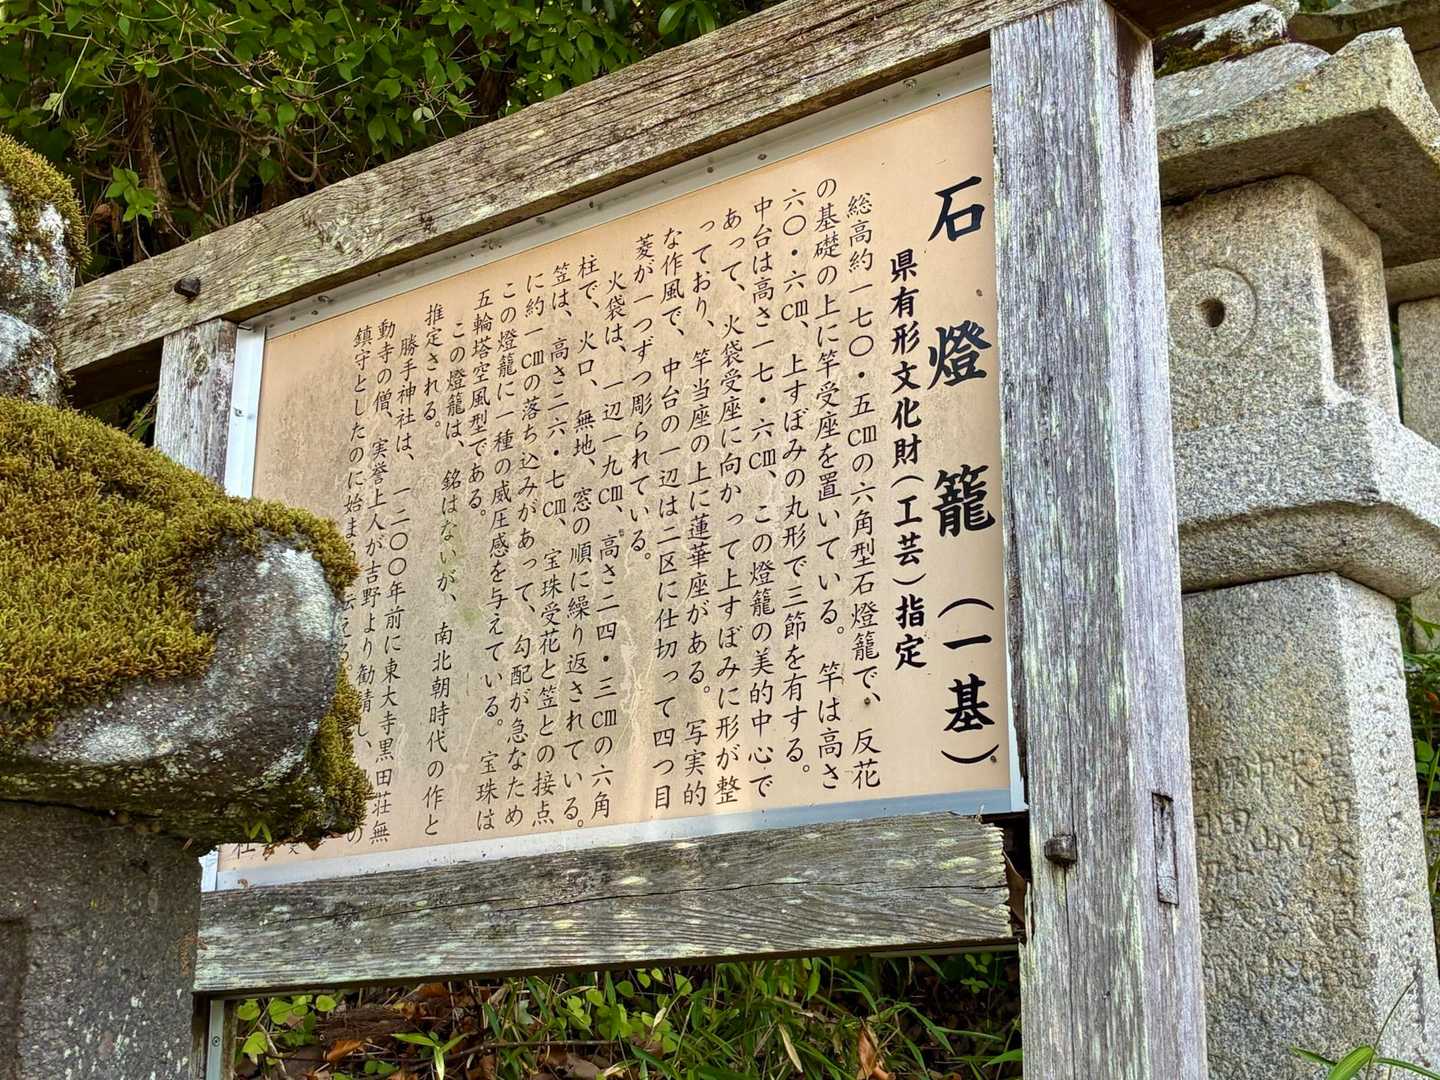 石燈籠(一基)
県有形文化財(工芸)指定
総高約一七〇・五cmの六角型石燈籠で、反花
の基礎の上に竿受座を置いている。竿は高さ
六〇・六cm、上すぼみの丸形で三節を有する。
中台は高さ一七・六cm、この燈籠の美的中心で
あって、火袋受座に向かって上すぼみに形が整
っており、竿当座の上に蓮華座がある。写実的
な作風で、中台の一辺は二区に仕切って四つ目
菱が一つずつ彫られている。
火袋は、一辺一九cm、高さ二四・三cmの六角
柱で、火口、無地、窓の順に繰り返されている。
笠は、高さ二六・七cm、宝珠受花と笠との接点
に約一cmの落ち込みがあって、勾配が急なため
この燈籠に一種の威圧感を与えている。宝珠は
五輪塔空風型である。
この燈籠は、銘はないが、南北朝時代の作と
推定される。
勝手神社は、一二〇〇年前に東大寺黒田荘無
動寺の僧、実誉上人が吉野より勧請し、
鎮守としたのに始ま
社